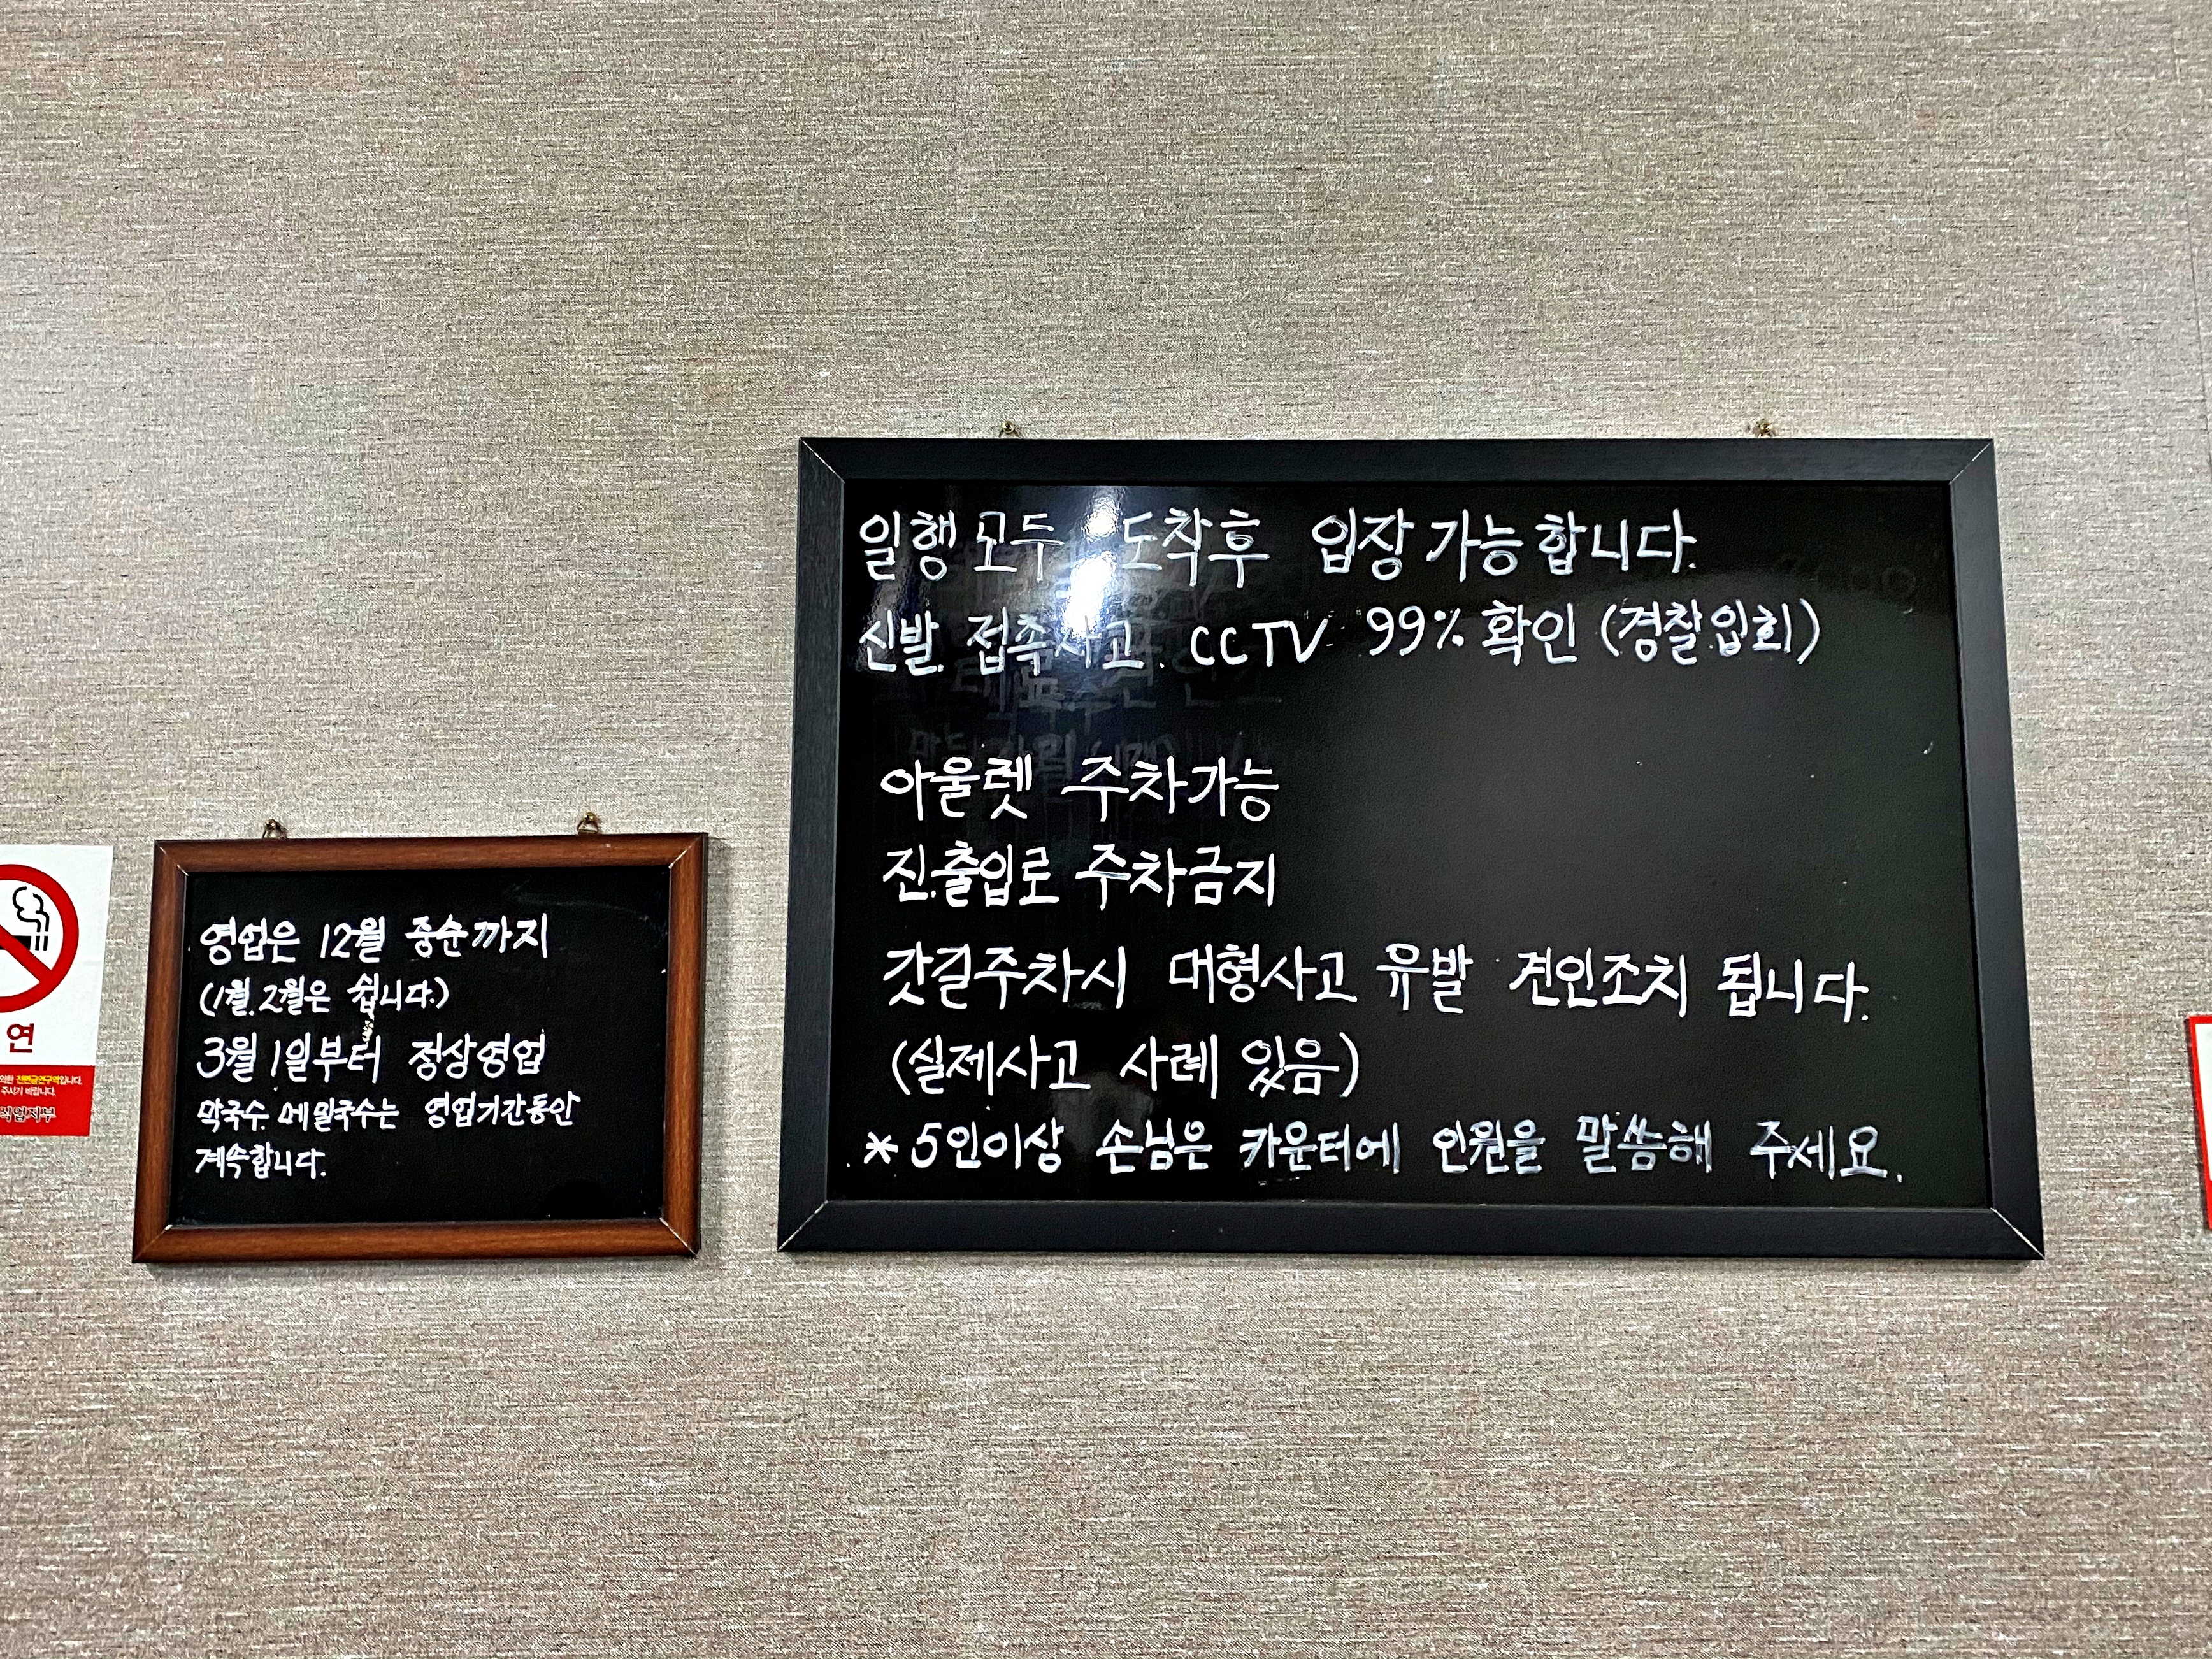 연
전면금연구역입니다.
주시기 바랍니다.
영업은 12월 중순까지
(1월.2월은 쉽니다.)
3월 1일부터 정상영업
막국수. 메밀국수는 영업기간동안
계속합니다.
일행모두 도착후 입장가능합니다.
신발. 접촉사고. CCTV 99% 확인 (경찰입회)
아울렛 주차가능
진.출입로 주차금지
갓길주차시 대형사고 유발 견인조치 됩니다.
(실제사고 사례 있음)
* 5인이상 손님은 카운터에 인원을 말씀해 주세요.